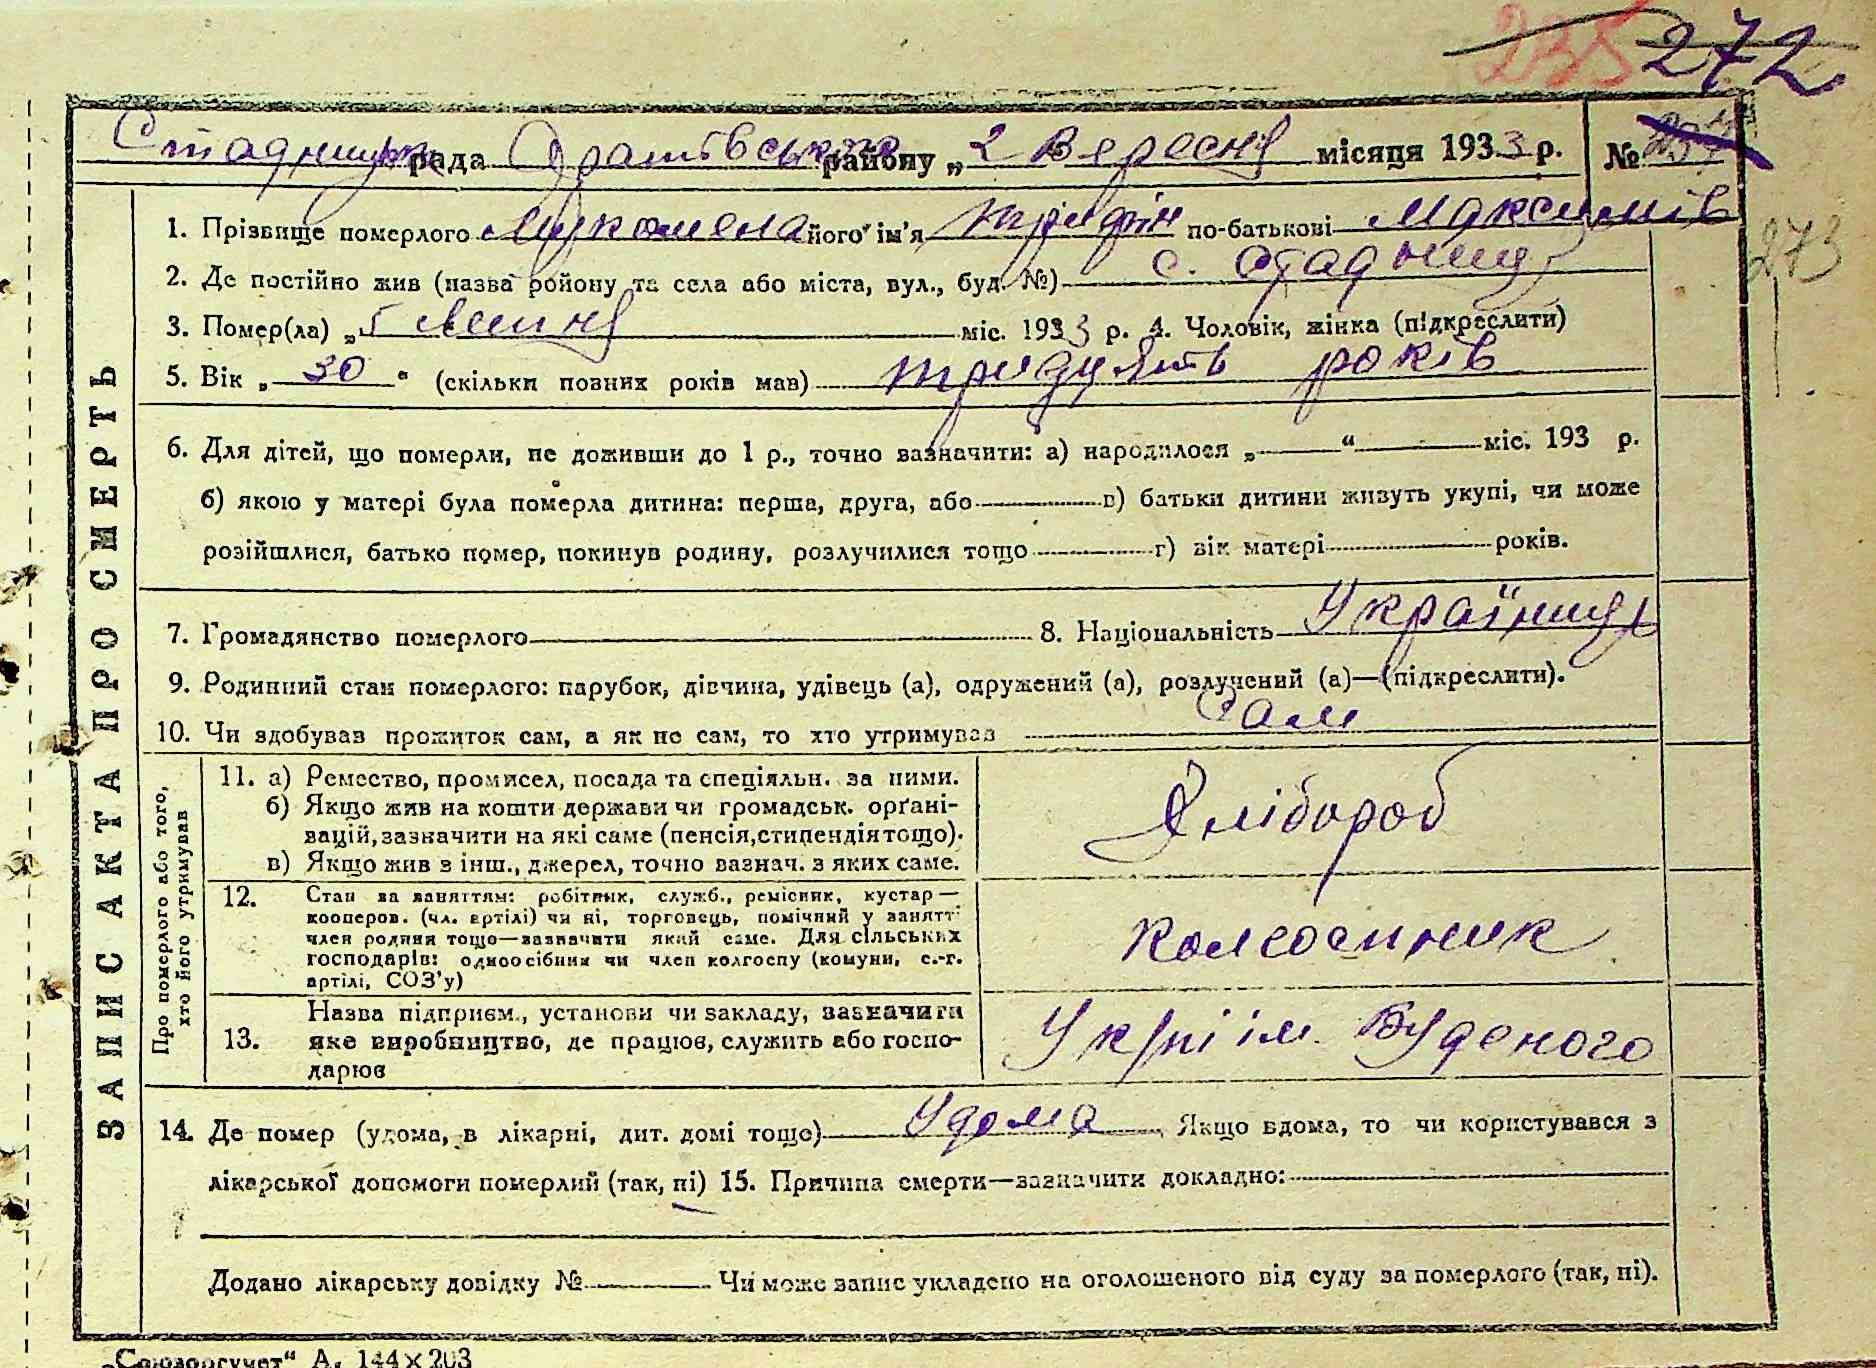 235 272
Стадницька рада Оратівського району „2 Вересня місяця 1933 р. №
273
1. Прізвище померлого його ім'я Трифін по-батькові Максимів
2. Де постійно жив (назва району та села або міста, вул., буд. №) с. Стадниця
3. Помер(ла) „5 Липня міс. 1933 р. 4. Чоловік, жінка (підкреслити)
5. Вік „30" (скільки повних років мав) тридцять років
6. Для дітей, що померли, не доживши до 1 р., точно вазначити: а) народилося „ “ міс. 193 р.
б) якою у матері була померла дитина: перша, друга, або в) батьки дитини живуть укупі, чи може
розійшлися, батько помер, покинув родину, розлучилися тощо г) вік матері років.
7. Громадянство померлого 8. Національність Українець
9. Родинний стан померлого: парубок, дівчина, удівець (а), одружений (а), розлучений (а)—(підкреслити).
10. Чи здобував прожиток сам, а як не сам, то хто утримував Сам
ЗАПИС АКТА ПРО СМЕРТЬ
Про померлого або того,
хто його утримував
11. а) Ремество, промисел, посада та спеціяльн. за ними.
б) Якщо жив на кошти держави чи громадськ. орґані-
зацій, зазначити на які саме (пенсія, стипендія тощо).
в) Якщо жив з інш., джерел, точно вазнач. з яких саме.
Хлібороб
12. Стан за заняттям: робітник, служб., ремісник, кустар—
кооперов. (чл. артілі) чи ні, торговець, помічний у занятті
член родини тощо—зазначити який саме. Для сільських
господарів: одноосібник чи член колгоспу (комуни, с.-г.
артілі, СОЗ'у)
колгоспник
13. Назва підприєм., установи чи закладу, зазначити
яке виробництво, де працює, служить або госпо-
дарює
ім. Буденого
14. Де помер (удома, в лікарні, дит. домі тоще) Удома Якщо вдома, то чи користувався з
лікарської допомоги померлий (так, ні) 15. Причина смерти—зазначити докладно:
Додано лікарську довідку № Чи може запис укладено на оголошеного від суду за померлого (так, ні).
„Союзоргучет“ А. 144×203